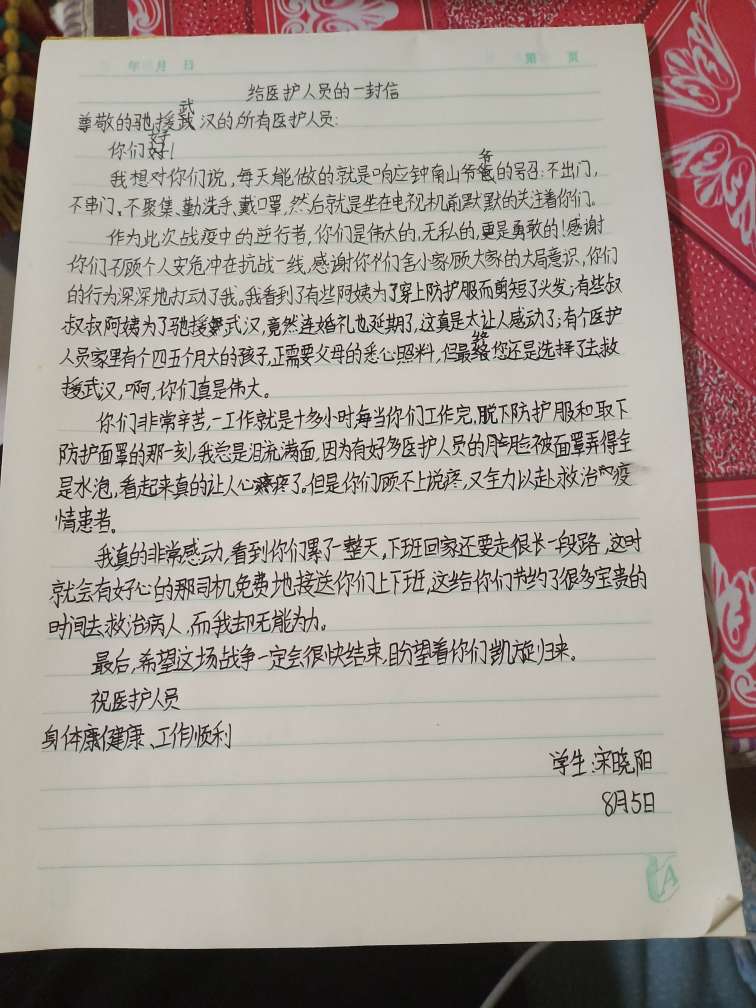 年 月 日 第 页
给医护人员的一封信
尊敬的驰援武汉的所有医护人员:
你们好!
我想对你们说,每天能做的就是响应钟南山爷爷的号召:不出门,
不串门、不聚集、勤洗手、戴口罩,然后就是坐在电视机前默默的关注着你们。
作为此次战疫中的逆行者,你们是伟大的,无私的,更是勇敢的!感谢
你们不顾个人安危冲在抗战一线,感谢你们舍小家顾大家的大局意识,你们
的行为深深地打动了我。我看到了有些阿姨为了穿上防护服而剪短了头发;有些叔
叔叔阿姨为了驰援武汉,竟然连婚礼也延期了,这真是太让人感动了;有个医护
人员家里有个四五个月大的孩子,正需要父母的悉心照料,但最终您还是选择了去救
援武汉,啊,你们真是伟大。
你们非常辛苦,一工作就是十多小时每当你们工作完,脱下防护服和取下
防护面罩的那一刻,我总是泪流满面,因为有好多医护人员的脸被面罩弄得全
是水泡,看起来真的让人心疼了。但是你们顾不上说疼,又全力以赴救治疫
情患者。
我真的非常感动,看到你们累了一整天,下班回家还要走很长一段路,这时
就会有好心的那司机免费地接送你们上下班,这给你们节约了很多宝贵的
时间去救治病人,而我却无能为力。
最后,希望这场战争一定会很快结束,盼望着你们凯旋归来。
祝医护人员
身体康健康、工作顺利
学生:宋晓阳
8月5日